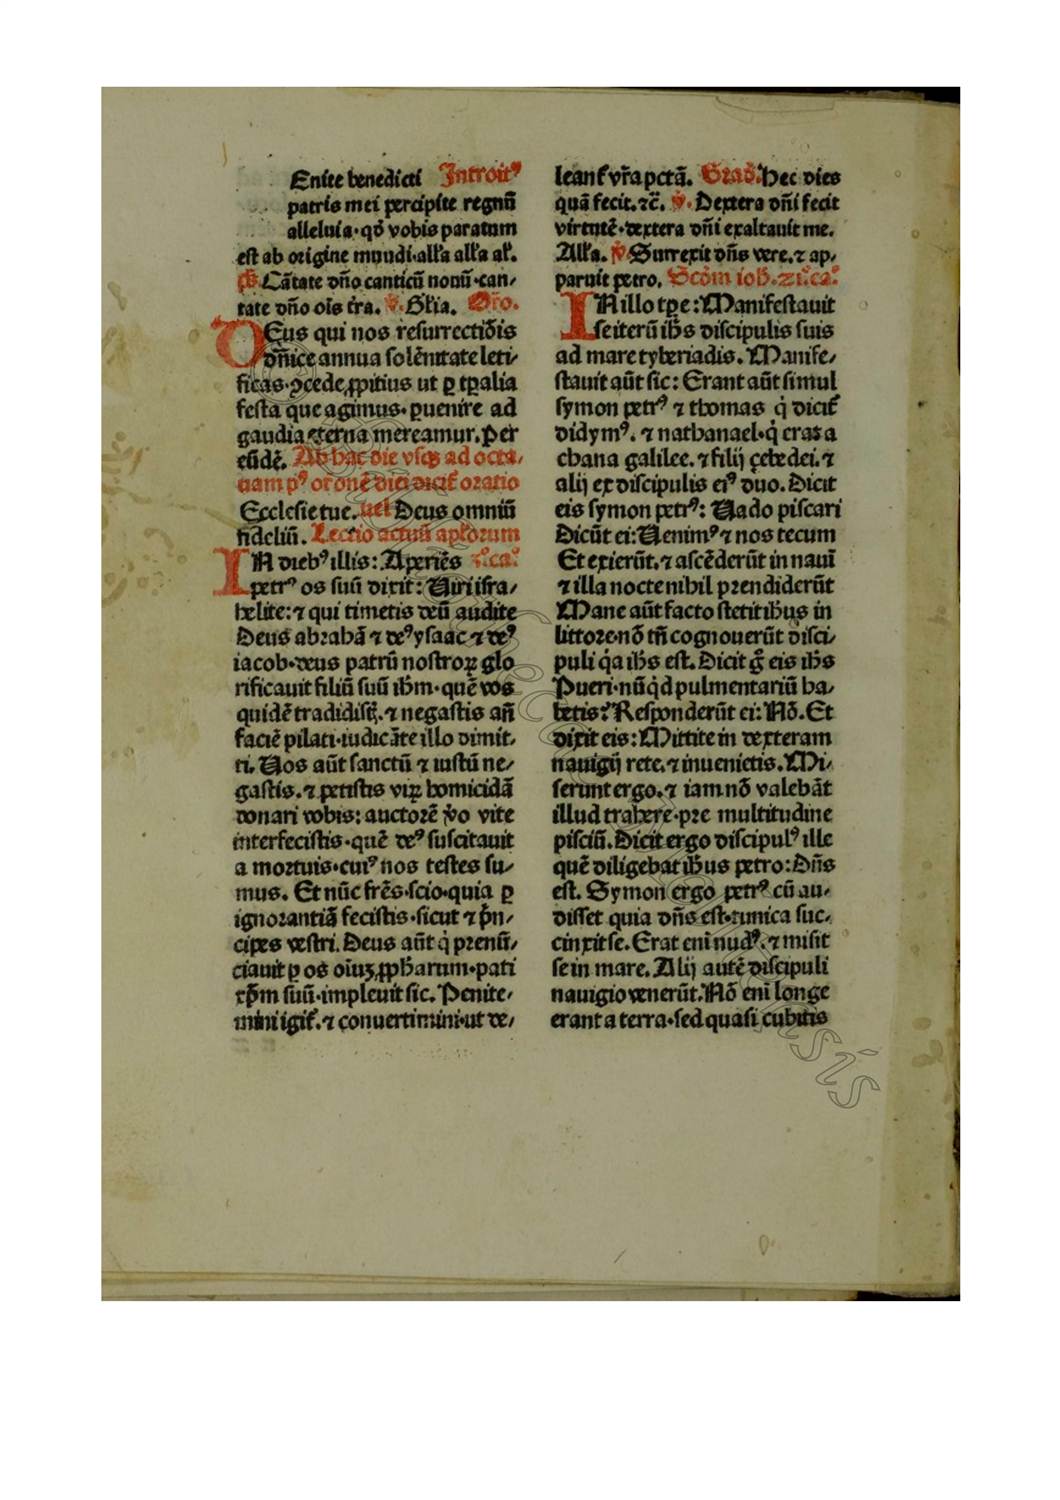 Enite benedicti Introitꝰ
patris mei percipite regnū
alleluia·qđ vobis paratum
est ab origine mundi·all'a all'a al'.
p̄s Cātate dn̄o canticū nouū·can⸗
tate dn̄o oīs t'ra. ℣. Gl'ia. Oro.
DEus qui nos resurrectiōis
dn̄ice annua solēnitate leti⸗
ficas·ꝯcede ꝓpitius ut ꝑ tꝑalia
festa que agimus·ꝑuenire ad
gaudia eterna mereamur. Per
eūdē. Ab hac die vsqꝫ ad octa⸗
uam pꝰ oronē diei dicit̄ oratio
Ecclesie tue. uel Deus omniū
fideliū. Lectio actuū apl'orum
IN diebꝰ illis: Aperiēs ꝫº.caº.
petrꝰ os suū dixit: Uiri isra⸗
helite: ⁊ qui timetis deū audite
Deus abrahā ⁊ deꝰ ysaac ⁊ deꝰ
iacob·deus patrū nostroꝝ glo
rificauit filiū suū ihm̄·quē vos
quidē tradidistꝭ·⁊ negastis añ
faciē pilati·iudicāte illo dimit⸗
ti. Uos aūt sanctū ⁊ iustū ne⸗
gastis.⁊ petistis viꝝ homicidā
donari vobis: auctorē v̊o vite
interfecistis·quē deꝰ suscitauit
a mortuis·cuiꝰ nos testes su⸗
mus. Et nūc frēs·scio·quia ꝑ
ignorantiā fecistis·sicut ⁊ p̄n⸗
cipes vestri. Deus aūt q̇ prenū⸗
ciauit ꝑ os oīuꝫ ꝓph̄arum·pati
xp̄m suū·impleuit sic. Penite⸗
mini igit̄.⁊ conuertimini·ut de⸗
leant̄ vr̄a pctā. Grad̄. Hec dies
quā fecit.⁊c̄. ℣. Dextera dn̄i fecit
virtutē·dextera dn̄i exaltauit me.
All'a. ℣ Surrexit dn̄s vere.⁊ ap⸗
paruit petro. Scd̄m ioh̄.zıº.caº.
IN illo tꝑe: Manifestauit
se iterū ihs̄ discipulis suis
ad mare tyberiadis. Manife⸗
stauit aūt sic: Erant aūt simul
symon petrꝰ ⁊ thomas q̇ dicit̄
didymꝰ.⁊ nathanael·q̇ erat a
chana galilee.⁊ filij çebedei.⁊
alij ex discipulis eiꝰ duo. Dicit
eis symon petrꝰ: Uado piscari
Dicūt ei: Uenimꝰ ⁊ nos tecum
Et exierūt.⁊ ascēderūt in nauī
⁊ illa nocte nihil prendiderūt
Mane aūt facto stetit ihūs in
littore·nō tn̄ cognouerūt disci⸗
puli q̇a ihs̄ est. Dicit g̊ eis ihs̄
Pueri·nūq̇d pulmentariū ha⸗
betis? Responderūt ei: Nō. Et
dixit eis: Mittite in dexteram
nauigij rete.⁊ inuenietis. Mi⸗
serunt ergo.⁊ iam nō valebāt
illud trahere·pre multitudine
pisciū. Dicit ergo discipulꝰ ille
quē diligebat ihūs petro: Dn̄s
est. Symon ergo petrꝰ cū au⸗
disset quia dn̄s est·tunica suc⸗
cinxit se. Erat enī nudꝰ.⁊ misit
se in mare. Alij autē discipuli
nauigio venerūt. Nō enī longe
erant a terra·sed quasi cubitis